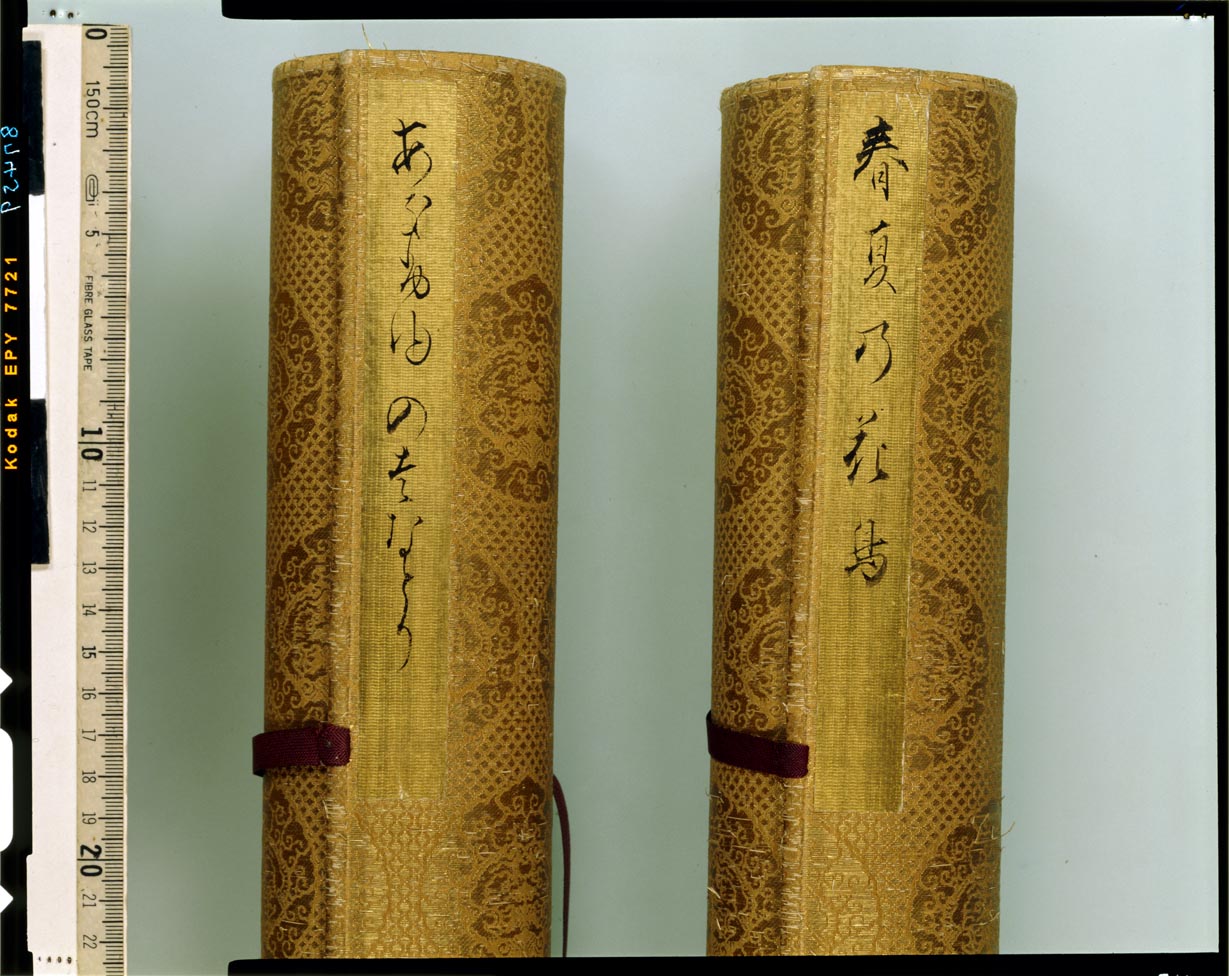 春夏乃花鳥
あきふゆのはなとり
Kodak EPY 7721
0
150cm
5
FIBRE GLASS TAPE
10
11
12
13
14
15
16
17
18
19
20
21
22